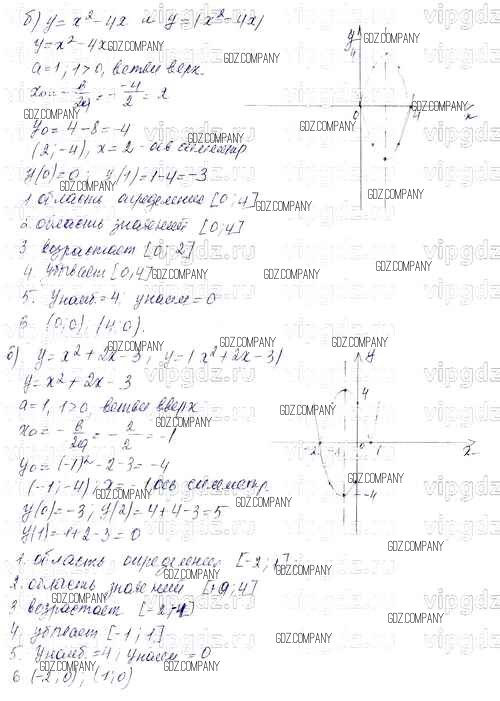 б) y = x² - 4x и y = |x² - 4x|
y = x² - 4x
a = 1; 1 > 0, ветви верх.
x₀ = - в/2a = - -4/2 = 2
y₀ = 4 - 8 = -4
(2; -4), x = 2 - ось симметр
y(0) = 0; y(1) = 1 - 4 = -3
1 область определение [0; 4]
2. область значений [0; 4]
3 возрастает [0; 2]
4. убывает [0, 4]
5. yнаиб. = 4. yнаим = 0
6. (0; 0), (4; 0).
в) y = x² + 2x - 3, y = |x² + 2x - 3|
y = x² + 2x - 3
a = 1, 1 > 0, ветви вверх
x₀ = - в/2a = - 2/2 = -1
y₀ = (-1)² - 2 - 3 = -4
(-1; -4), x = -1 ось симметр.
y(0) = -3; y(2) = 4 + 4 - 3 = 5
y(1) = 1 + 2 - 3 = 0
1. область определения [-2; 1]
2. область значений [0; 4]
3 возрастает [-2; -1]
4. убывает [-1; 1]
5. yнаиб. = 4; yнаим = 0
6 (-2; 0), (1; 0)
y
4
0
4
x
y
4
-2
-1
0
1
x
-4
GDZ.COMPANY
vipgdz.ru